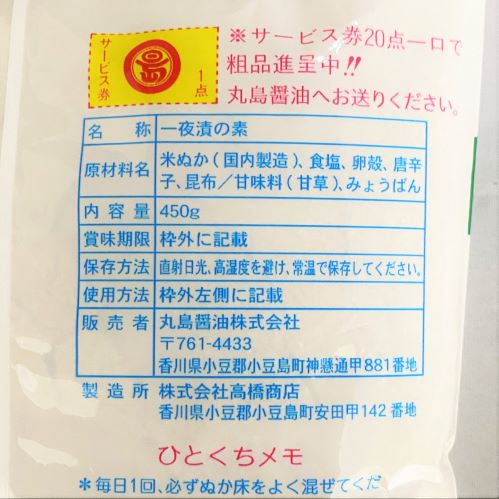 サービス券
島
1点
※サービス券20点一口で
粗品進呈中!!
丸島醤油へお送りください。
名称 一夜漬の素
原材料名 米ぬか(国内製造)、食塩、卵殻、唐辛
子、昆布/甘味料(甘草)、みょうばん
内容量 450g
賞味期限 枠外に記載
保存方法 直射日光、高湿度を避け、常温で保存してください。
使用方法 枠外左側に記載
販売者 丸島醤油株式会社
〒761-4433
香川県小豆郡小豆島町神懸通甲881番地
製造所 株式会社高橋商店
香川県小豆郡小豆島町安田甲142番地
ひとくちメモ
*毎日1回、必ずぬか床をよく混ぜてくだ